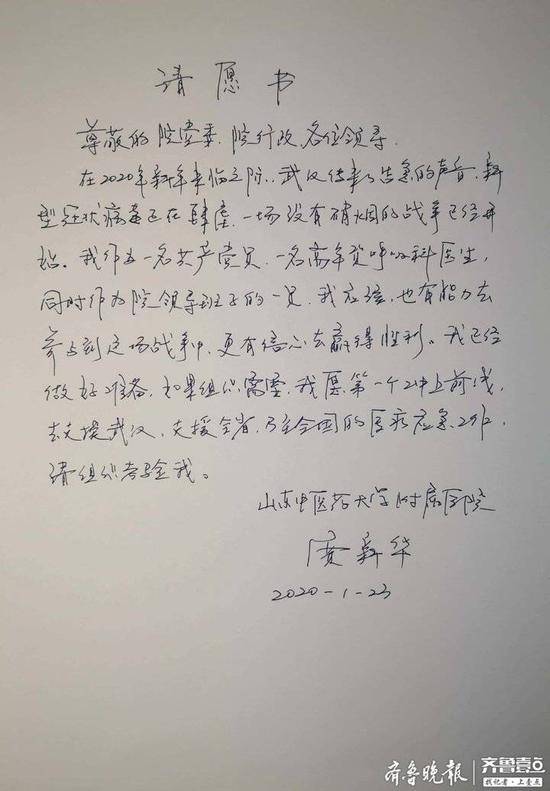 请愿书
尊敬的院党委、院行政、各位领导、
在2020年新年来临之际、武汉传来了告急的声音、新
型冠状病毒正在肆虐、一场没有硝烟的战争已经开
始。我作为一名共产党员、一名高年资呼吸科医生,
同时作为院领导班子的一员、我应该、也有能力去
参与到这场战争中、更有信心去赢得胜利。我已经
做好准备、如果组织需要、我愿第一个冲上前线,
去支援武汉、支援全省、乃至全国的医疗应急工作,
请组织考验我。
山东中医药大学附属医院
贾新华
2020-1-23
齐鲁晚报 齐鲁壹点
找记者·上壹点